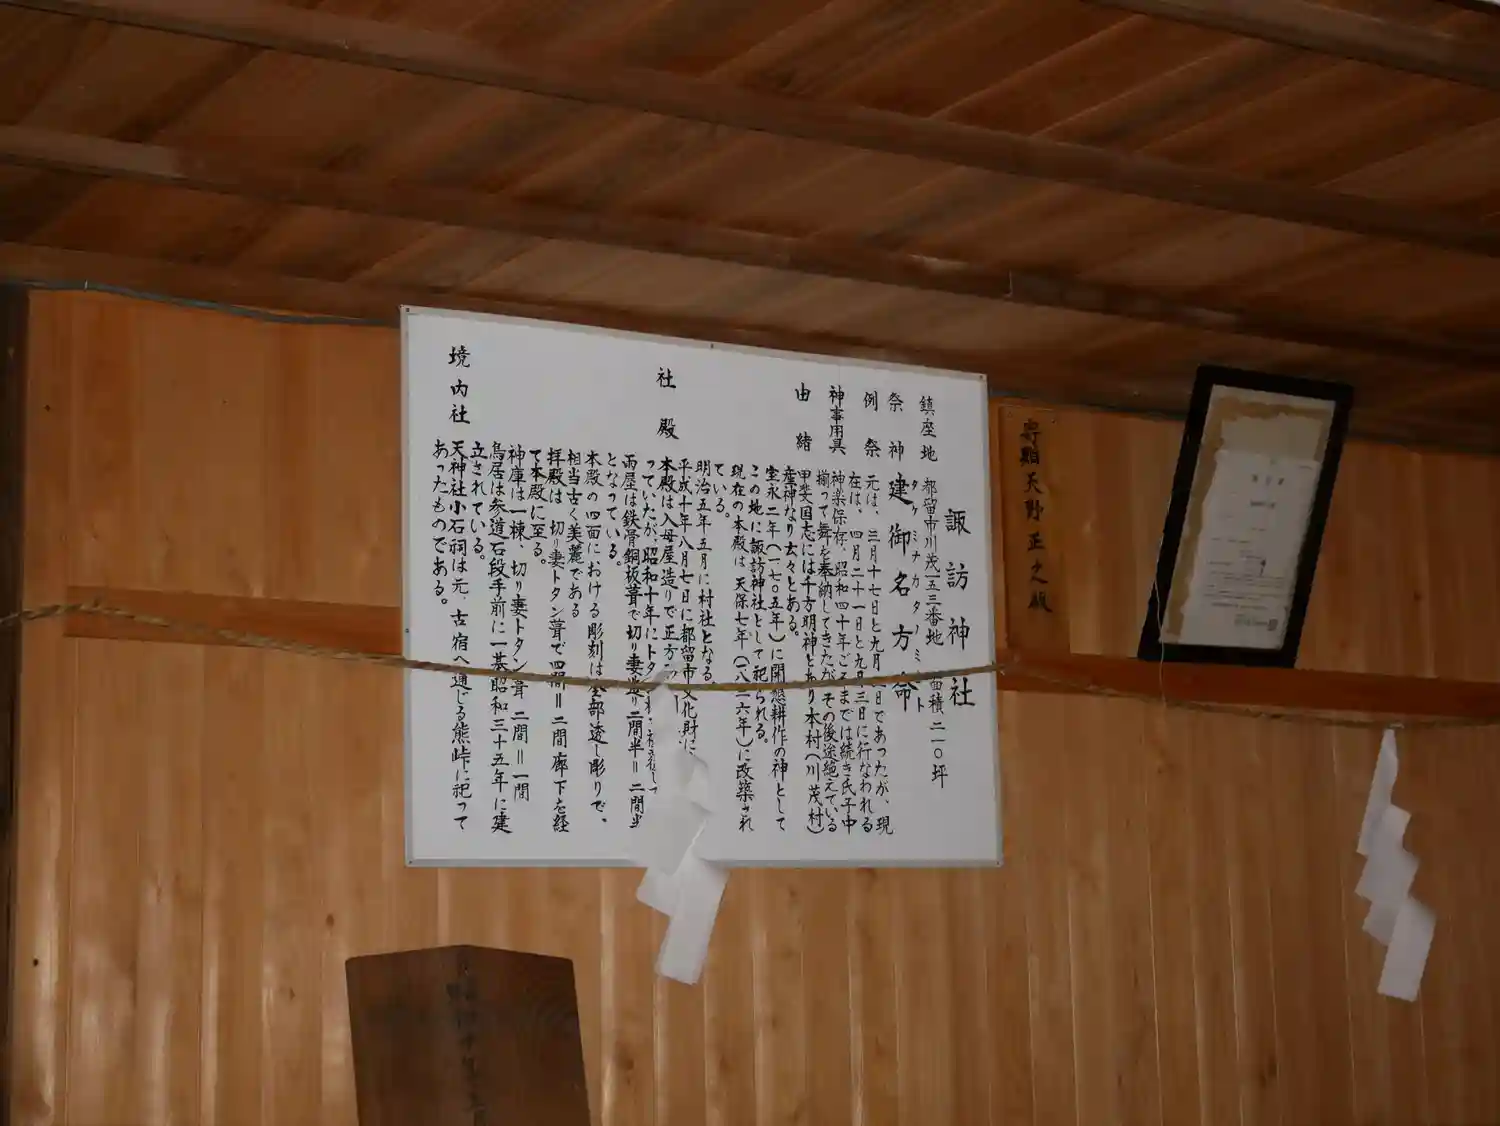 諏訪神社
鎮座地 都留市川茂一五三番地 面積 二一〇坪
祭神 建御名方命
タケミナカタノミコト
例祭 元は、三月十七日と九月 日であつたが、現
在は、四月二十一日と九月三日に行なわれる
神事用具 神楽保存、昭和四十年ごろまでは続き氏子中
揃つて舞を奉納してきたが、その後途絶えている
由緒 甲斐国志には千方明神とあり本村(川茂村)
産神なり玄々とある。
宝永二年(一七〇五年)に開懇耕作の神として
この地に諏訪神社として祀られる。
現在の本殿は天保七年(一八三六年)に改築され
ている。
明治五年五月に村社となる。
平成十年八月七日に都留市文化財に
社殿 本殿は入母屋造りで正方
っていたが、昭和十年にトタン
雨屋は鉄骨銅板葺で切り妻造り二間半=二間半
となつている。
本殿の四面における彫刻は全部透し彫りで、
相当古く美麗である
拝殿は 切り妻トタン葺で四間=二間廊下を経
て本殿に至る。
神庫は一棟、切り妻トタン葺 二間=一間
鳥居は参道石段手前に一基昭和三十五年に建
立されている。
境内社 天神社小石祠は元、古宿へ通じる熊峠に祀って
あったものである。
寄贈 天野正之殿